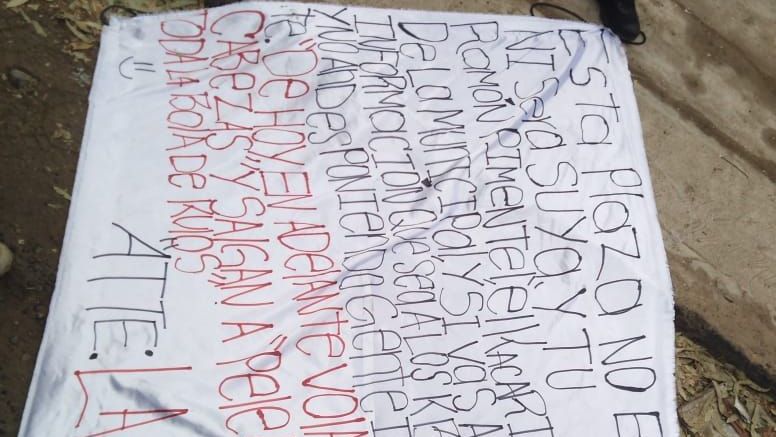 ESta PlaZO NO E
NI SEA SUYO Y TU
RAMÓN PIMENTEL E
DE LA MUNICIPAL Y SI VAS A
INFORMACION QUE SEA A LOS
Y NO ANDES PONIENDO GENTE
TE.
"DE HOY EN ADELANTE VOLA
CABEZAS" Y SALGAN A "PELE
TODA LA BOLA DE KULOS
ATTE: LA